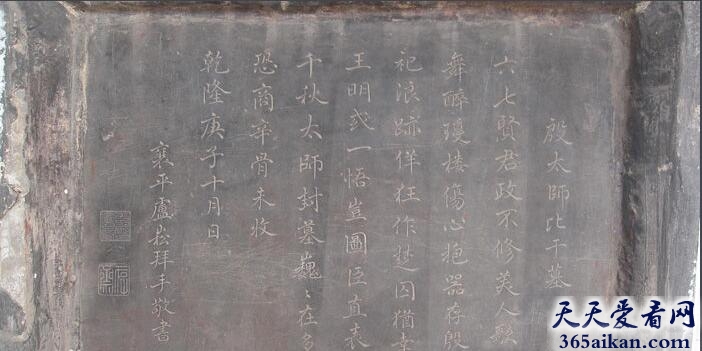 殷太師比干墓
六七賢君政不修美人歌
舞醉瓊樓傷心抱器存殷
祀浪跡佯狂作楚囚猶幸
王明或一悟豈圖臣直表
千秋太師封墓巍〻在多
恐商辛骨未收
乾隆庚子十月日
襄平盧崧拜手敬書
天天爱看网
365aikan.com